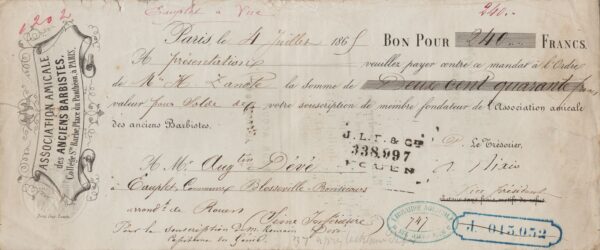 1202
Eauplet à Vue
240..
ASSOCIATION AMICALE
des ANCIENS BARBISTES.
Collège Ste Barbe, Place du Panthéon à PARIS.
Paris, le 4 Juillet 1865 BON POUR 240.. FRANCS.
A présentation veuillez payer contre ce mandat à l'Ordre
de Mr H. la somme de Deux cent quarante francs
valeur pour Solde de votre souscription de membre fondateur de l'Association amicale
des anciens Barbistes.
J.L.T. & Cie
338,997
ROUEN
Le Trésorier,
Vice président
A Mr Augtin Dévé
à Eauplet Commune Blosseville Bonsecours
arrondt de Rouen (Seine Inférieure)
Pour la souscription de Mr Romain Dévé
Capitaine du Génie.
747
J. 015,052